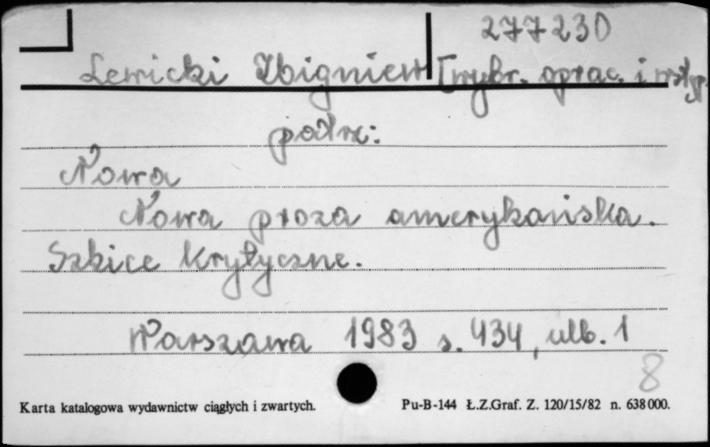 277230
Lewicki Zbigniew [wybr. oprac. i wstęp
patrz:
Nowa
Nowa proza amerykańska.
Szkice krytyczne.
Warszawa 1983 s. 434, ulb. 1
8
Karta katalogowa wydawnictw ciągłych i zwartych. Pu-B-144 Ł.Z.Graf. Z. 120/15/82 n. 638000.